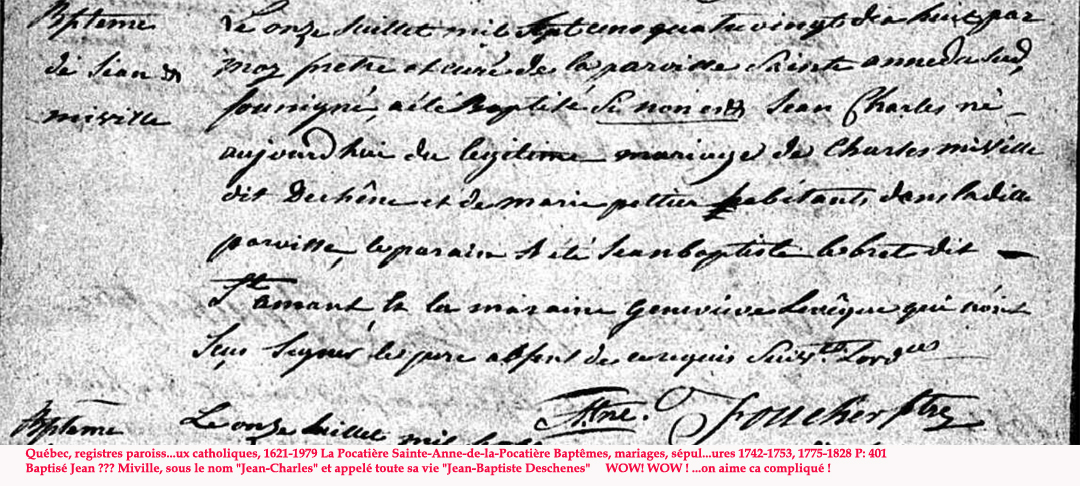 Bpteme
de Jean
miville
Le onze Juillet mil sept cens quatre vingt dix huit par
moy pretre et curé de la paroisse Sainte anne du Sud,
soussigné, a été Baptisé Jean Charles né
aujourd'hui du legitime mariage de Charles miville
dit Dechêne et de marie pettier habitants dans ladite
paroisse, le parain a été Jean baptiste lebret dit
St amant et la maraine Genevieve Levêque qui n'ont
Sçus Signer le pere absent de ce requis Suivt. l'ord
Foucher ptre
Bpteme
Le onze Juillet mil
Québec, registres paroiss...ux catholiques, 1621-1979 La Pocatière Sainte-Anne-de-la-Pocatière Baptêmes, mariages, sépul...ures 1742-1753, 1775-1828 P: 401
Baptisé Jean ??? Miville, sous le nom "Jean-Charles" et appelé toute sa vie "Jean-Baptiste Deschenes" WOW! WOW ! ...on aime ca compliqué !